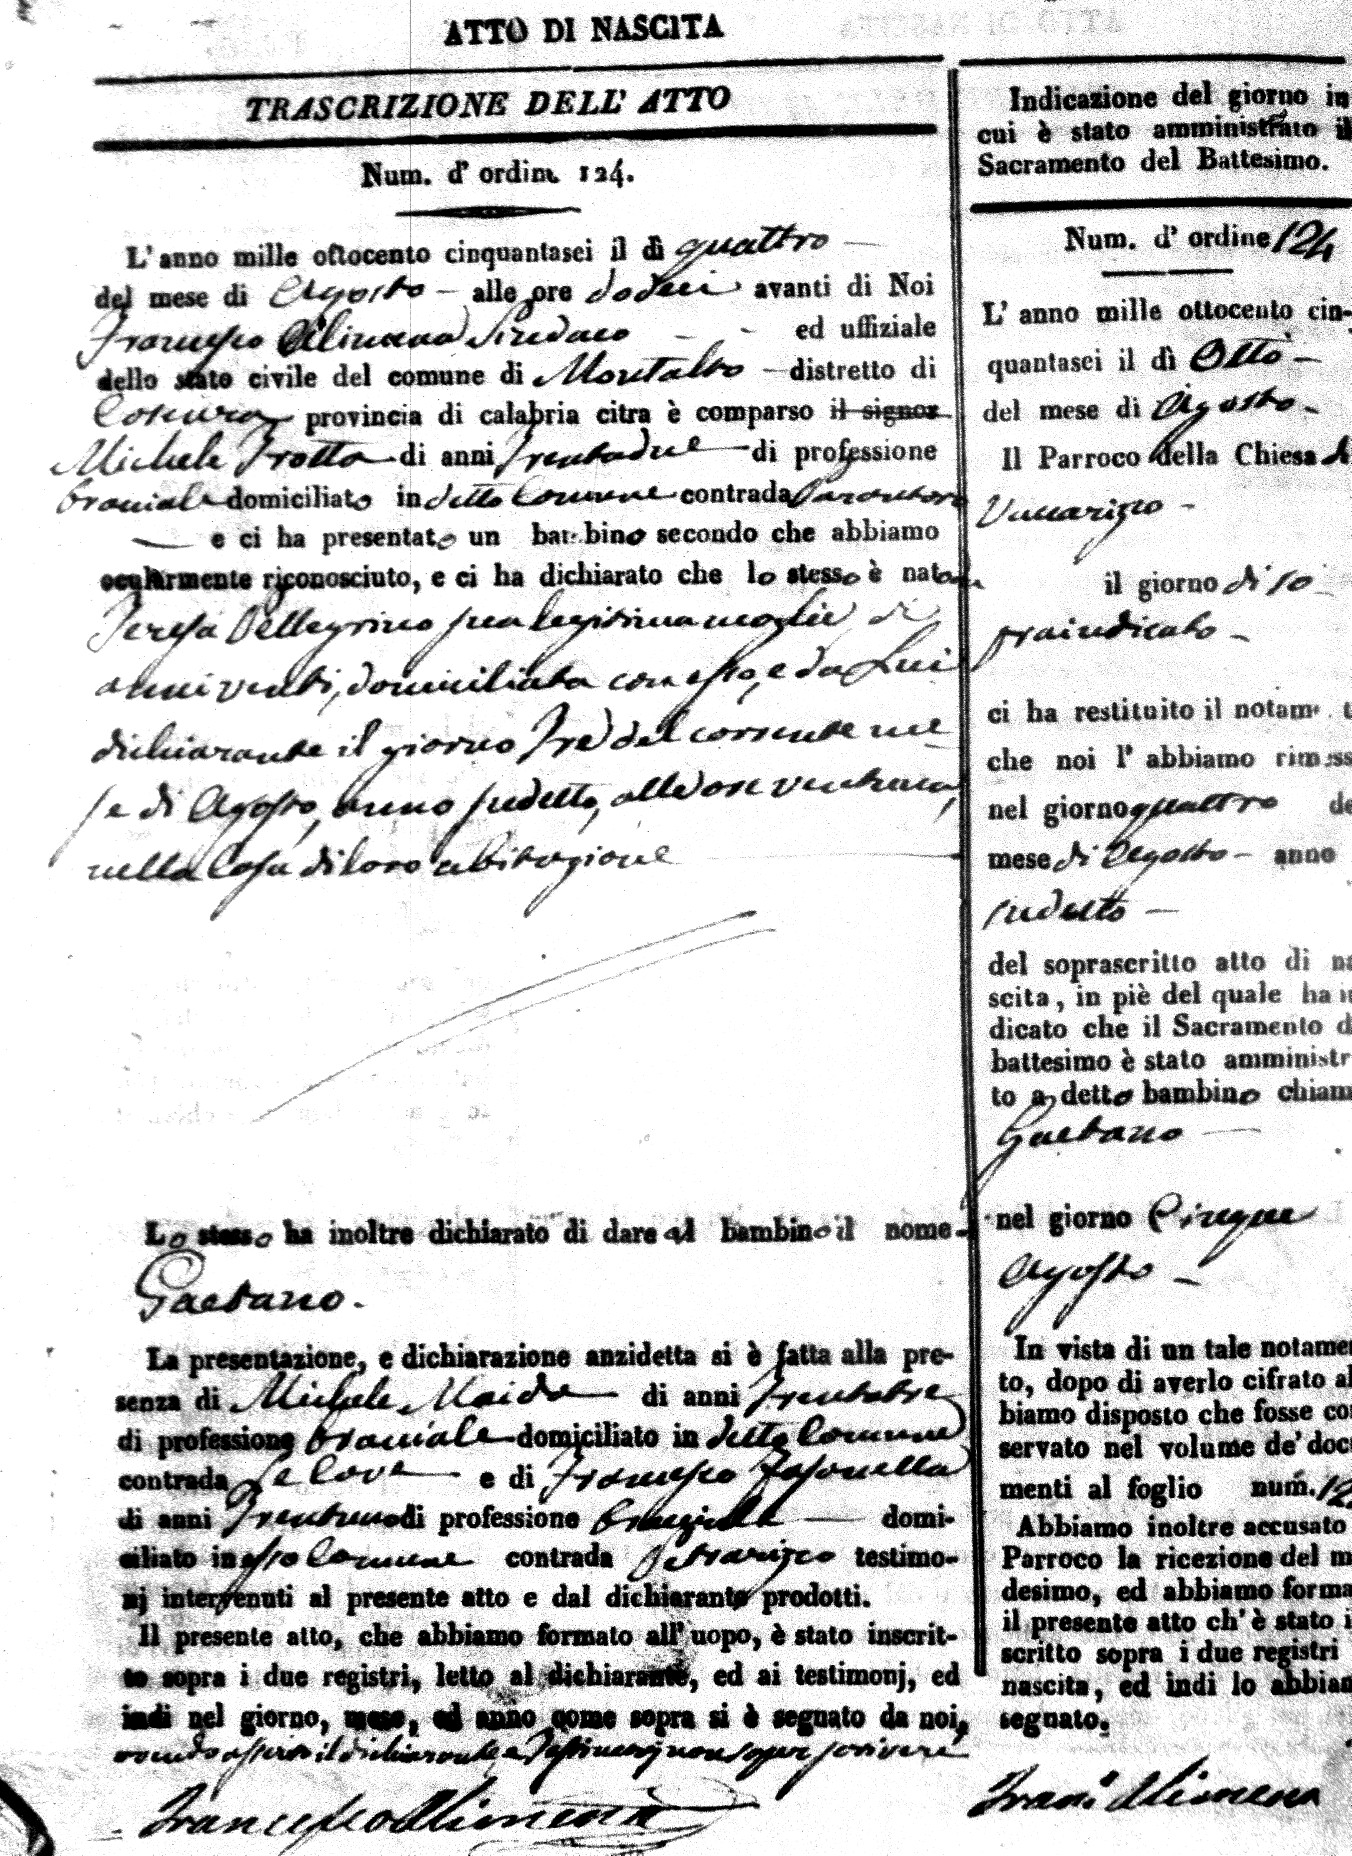 ATTO DI NASCITA
TRASCRIZIONE DELL' ATTO
Num. d' ordine 124.
L'anno mille ottocento cinquantasei il dì quattro
del mese di Agosto alle ore dodeci avanti di Noi
Francesco Alimena Sindaco ed uffiziale
dello stato civile del comune di Montalto distretto di
Cosenza provincia di calabria citra è comparso il signor
Michele Trotta di anni trentadue di professione
braciale domiciliato in detto Comune contrada
e ci ha presentato un bambino secondo che abbiamo
ocularmente riconosciuto, e ci ha dichiarato che lo stesso è nato da
Teresa Pellegrino sua legitima moglie di
anni venti, domiciliata con esso, e da Lui
dichiarante il giorno Tre del corrente me
se di Agosto, anno sudetto, alle ore ventuna,
nella Casa di loro abitazione
Lo stesso ha inoltre dichiarato di dare al bambino il nome
Gaetano.
La presentazione, e dichiarazione anzidetta si è fatta alla pre-
senza di Michele Maida di anni trentatre
di professione braciale domiciliato in detto Comune
contrada e di Francesco Fasonella
di anni Trentuno di professione domi-
ciliato in esso Comune contrada testimo-
nj intervenuti al presente atto e dal dichiarante prodotti.
Il presente atto, che abbiamo formato all' uopo, è stato inscrit-
to sopra i due registri, letto al dichiarante, ed ai testimonj, ed
indi nel giorno, mese, ed anno come sopra si è segnato da noi,
avendo asserito il dichiarante e Testimonj non saper scrivere
Francesco Alimena
Indicazione del giorno in
cui è stato amministrato il
Sacramento del Battesimo.
Num. d' ordine 124
L' anno mille ottocento cin-
quantasei il dì Otto
del mese di Agosto
Il Parroco della Chiesa di
Vaccarizzo
il giorno di so
praindicato
ci ha restituito il notam
che noi l' abbiamo rimess
nel giorno quattro de
mese di Agosto anno
sudetto
del soprascritto atto di na
scita, in piè del quale ha in
dicato che il Sacramento d
battesimo è stato amministr
to a detto bambino chiam
Gaetano
nel giorno Cinque
Agosto
In vista di un tale notamen
to, dopo di averlo cifrato ab
biamo disposto che fosse con
servato nel volume de' docu
menti al foglio num. 12
Abbiamo inoltre accusato
Parroco la ricezione del m
desimo, ed abbiamo forma
il presente atto ch' è stato i
scritto sopra i due registri
nascita, ed indi lo abbiam
segnato.
Fran. Alimena